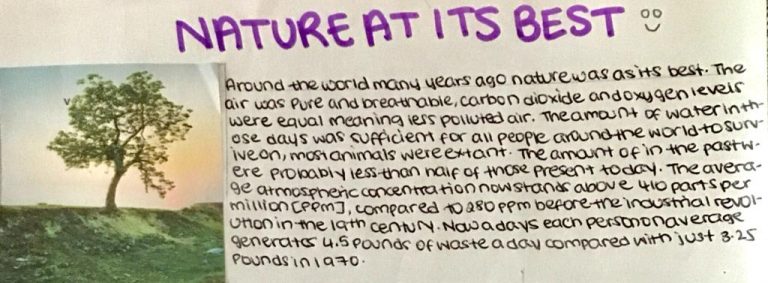 NATURE AT ITS BEST
Around the world many years ago nature was as its best. The
air was pure and breathable, carbon dioxide and oxygen levels
were equal meaning less polluted air. The amount of water in th-
ose days was sufficient for all people around the world to surv-
ive on, most animals were extant. The amount of in the past w-
ere probably less than half of those present today. The avera-
ge atmospheric concentration now stands above 410 parts per
million [PPm], compared to 280 ppm before the industrial revol-
ution in the 19th century. Nowadays each person on average
generates 4.5 pounds of waste a day compared with just 3.25
pounds in 1970.